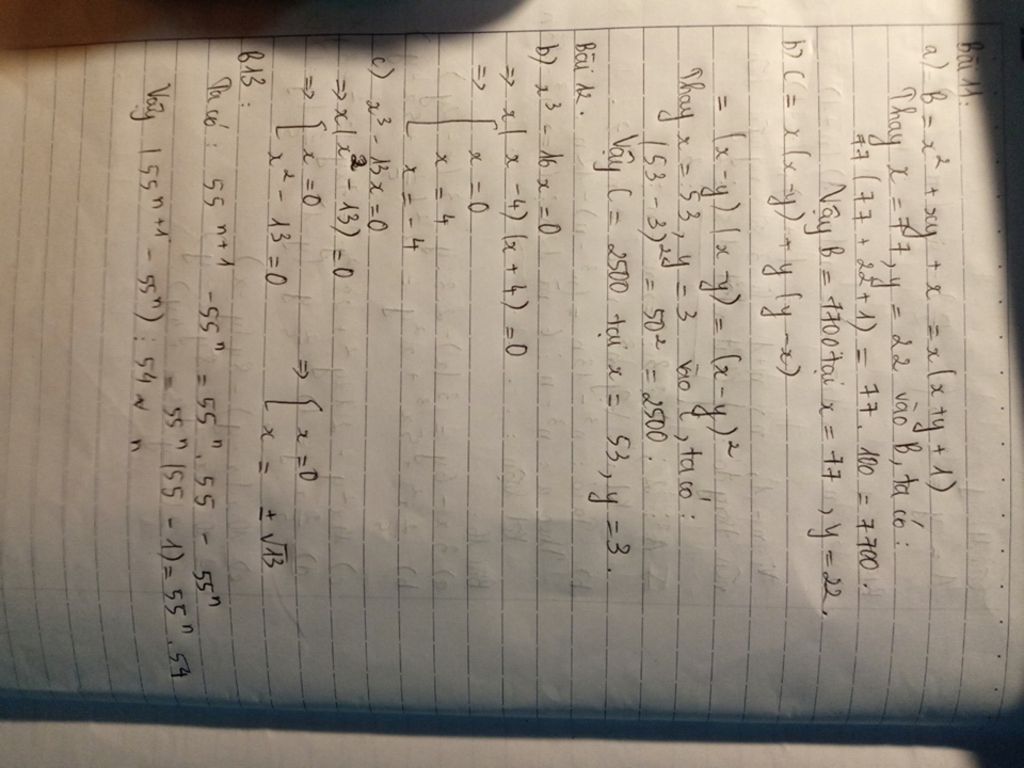 Bài 11.
a) B = x² + xy + x = x(x+y+1)
Thay x = 77, y = 22 vào B, ta có:
77(77+22+1) = 77.100 = 7700.
Vậy B = 7700 tại x = 77, y = 22.
b) C = x(x-y) + y(y-x)
= (x-y)(x-y) = (x-y)²
Thay x = 53, y = 3 vào C, ta có:
(53-3)² = 50² = 2500.
Vậy C = 2500 tại x = 53, y = 3.
Bài 12.
b) x³ - 16x = 0
=> x(x-4)(x+4) = 0
=> [ x = 0
x = 4
x = -4
c) x³ - 13x = 0
=> x(x² - 13) = 0
=> [ x = 0 => [ x = 0
x² - 13 = 0 x = ± √13
B13:
Ta có: 55ⁿ⁺¹ - 55ⁿ = 55ⁿ.55 - 55ⁿ
= 55ⁿ(55-1) = 55ⁿ.54
Vậy (55ⁿ⁺¹ - 55ⁿ) : 54 n